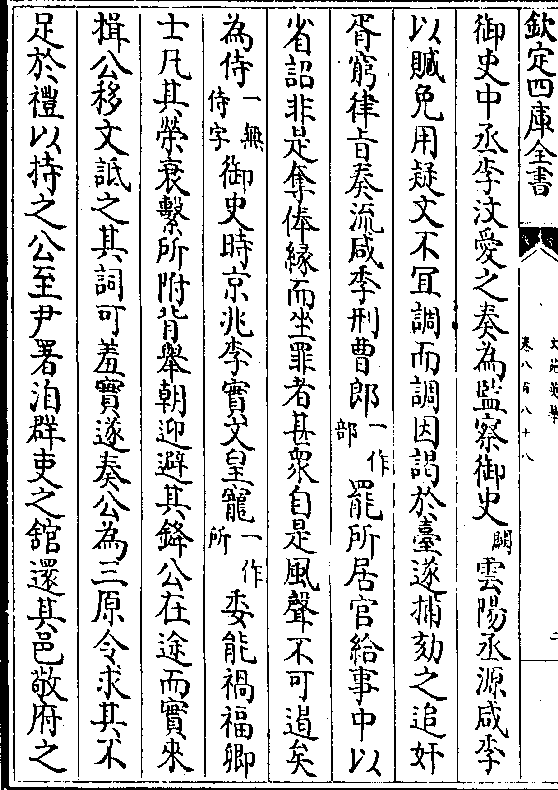 欽定四庫全書
文苑英華
卷八百八十八
二
御史中丞李汶愛之奏為監察御史闕雲陽丞源咸季
以贓免用疑文不冝調而調因謁於臺遂捕劾之追奸
胥窮律旨奏流咸季刑曹郎一作部罷所居官給事中以
省詔非是奪俸緣而坐罪者甚衆自是風聲不可遏矣
為侍一無侍字御史時京兆李實文皇寵一作所委能禍福卿
士凡其榮衰繫所附背舉朝迎避其鋒公在途而實來
揖公移文詆之其詞可羞實遂奏公為三原令求其不
足於禮以持之公至尹署洎群吏之舘還其邑敬府之